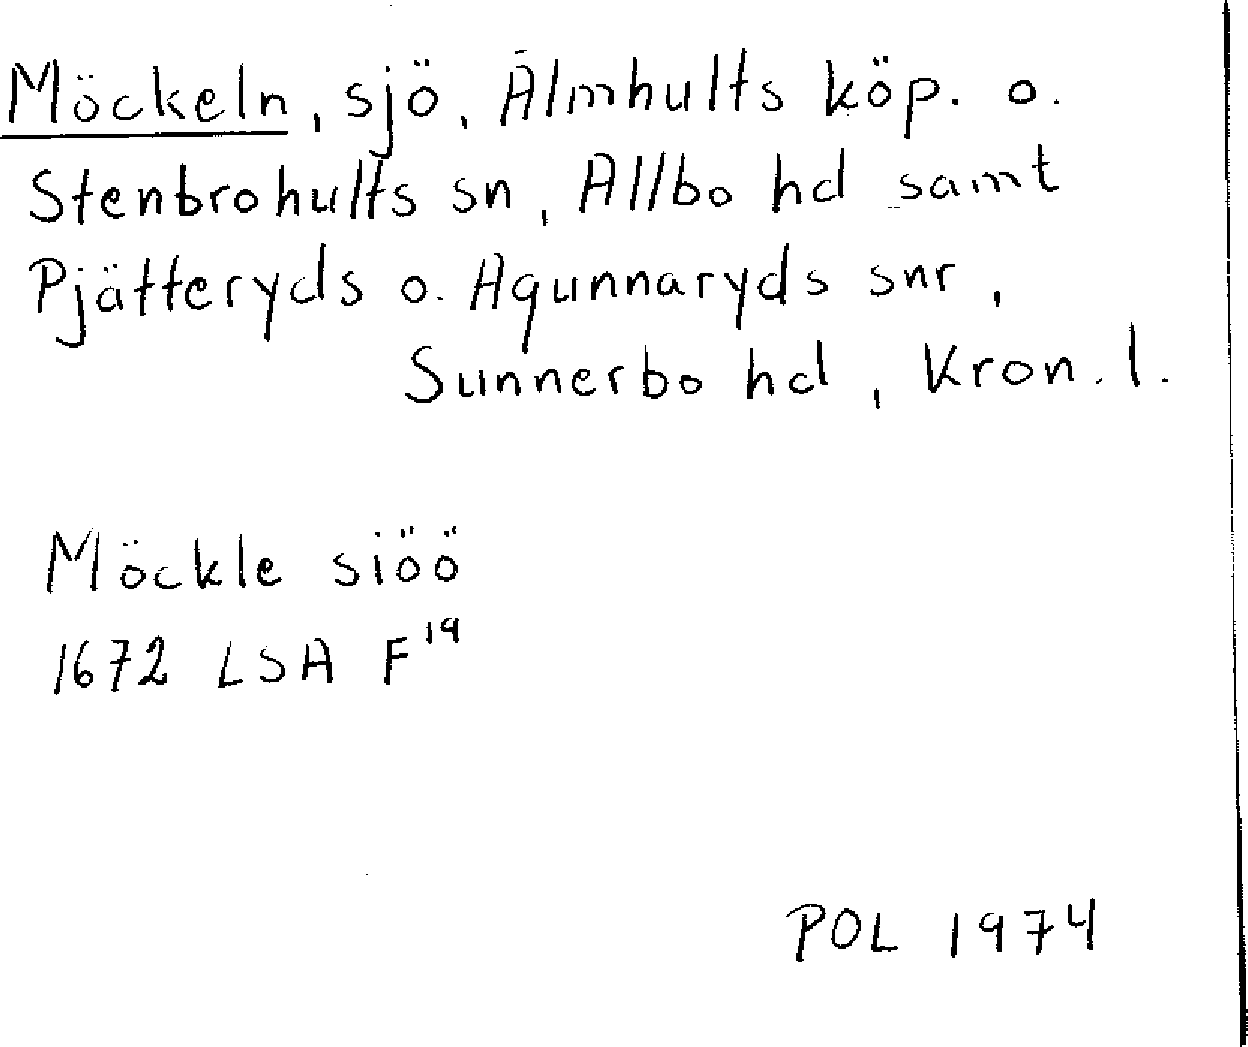 Möckeln, sjö, Älmhults köp. o.
Stenbrohults sn, Allbo hd samt
Pjätteryds o. Agunnaryds snr,
Sunnerbo hd, Kron. l.
Möckle siöö
1672 LSA F 19
POL 1974